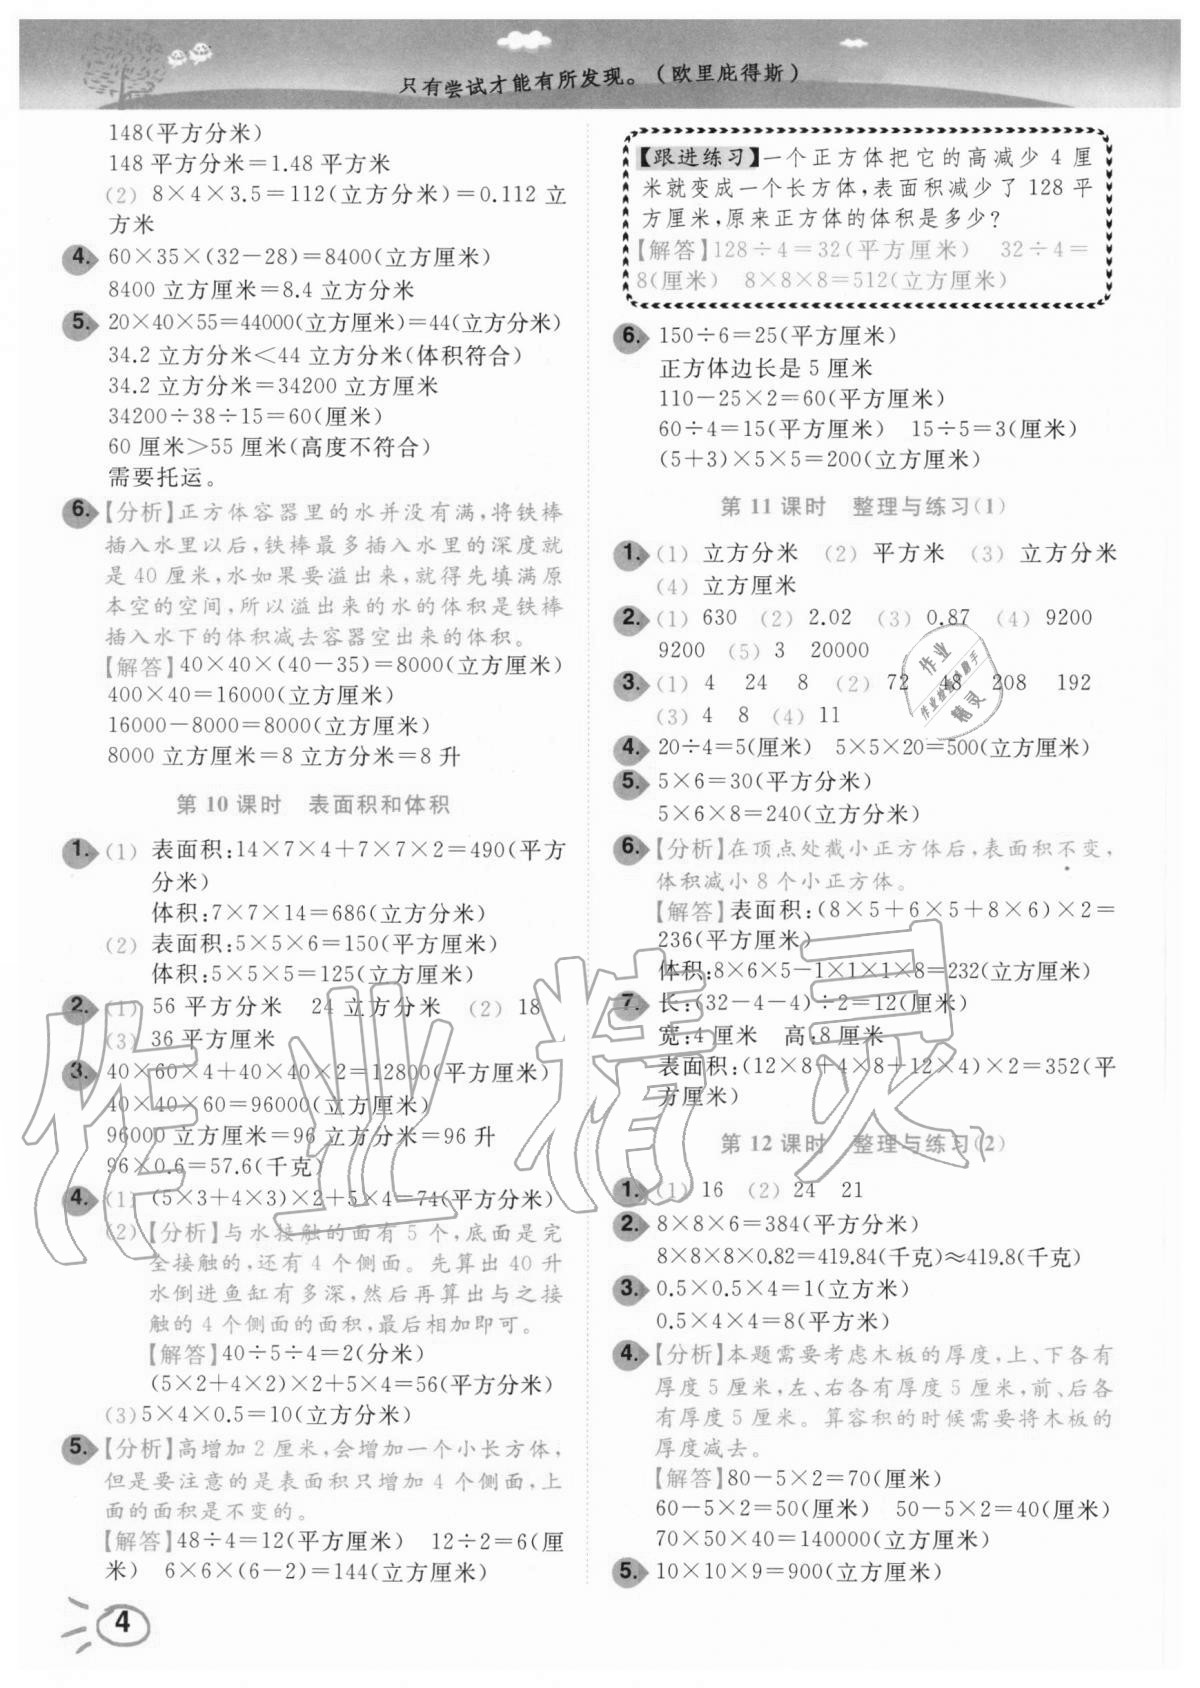 只有尝试才能有所发现。（欧里庇得斯）
148(平方分米)
148 平方分米=1.48 平方米
(2) 8×4×3.5=112(立方分米)=0.112 立
方米
4. 60×35×(32-28)=8400(立方厘米)
8400 立方厘米=8.4 立方分米
5. 20×40×55=44000(立方厘米)=44(立方分米)
34.2 立方分米<44 立方分米(体积符合)
34.2 立方分米=34200 立方厘米
34200÷38÷15=60(厘米)
60 厘米>55 厘米(高度不符合)
需要托运。
6. 【分析】正方体容器里的水并没有满,将铁棒
插入水里以后,铁棒最多插入水里的深度就
是 40 厘米,水如果要溢出来,就得先填满原
本空的空间,所以溢出来的水的体积是铁棒
插入水下的体积减去容器空出来的体积。
【解答】40×40×(40-35)=8000(立方厘米)
400×40=16000(立方厘米)
16000-8000=8000(立方厘米)
8000 立方厘米=8 立方分米=8 升
第 10 课时 表面积和体积
1. (1) 表面积:14×7×4+7×7×2=490(平方
分米)
体积:7×7×14=686(立方分米)
(2) 表面积:5×5×6=150(平方厘米)
体积:5×5×5=125(立方厘米)
2. (1) 56 平方分米 24 立方分米 (2) 18
(3) 36 平方厘米
3. 40×60×4+40×40×2=12800(平方厘米)
40×40×60=96000(立方厘米)
96000 立方厘米=96 立方分米=96 升
96×0.6=57.6(千克)
4. (1) (5×3+4×3)×2+5×4=74(平方分米)
(2) 【分析】与水接触的面有 5 个,底面是完
全接触的,还有 4 个侧面。先算出 40 升
水倒进鱼缸有多深,然后再算出与之接
触的 4 个侧面的面积,最后相加即可。
【解答】40÷5÷4=2(分米)
(5×2+4×2)×2+5×4=56(平方分米)
(3)5×4×0.5=10(立方分米)
5. 【分析】高增加 2 厘米,会增加一个小长方体,
但是要注意的是表面积只增加 4 个侧面,上
面的面积是不变的。
【解答】48÷4=12(平方厘米) 12÷2=6(厘
米) 6×6×(6-2)=144(立方厘米)
4
【跟进练习】一个正方体把它的高减少 4 厘
米就变成一个长方体,表面积减少了 128 平
方厘米,原来正方体的体积是多少?
【解答】128÷4=32(平方厘米) 32÷4=
8(厘米) 8×8×8=512(立方厘米)
6. 150÷6=25(平方厘米)
正方体边长是 5 厘米
110-25×2=60(平方厘米)
60÷4=15(平方厘米) 15÷5=3(厘米)
(5+3)×5×5=200(立方厘米)
第 11 课时 整理与练习(1)
1. (1) 立方分米 (2) 平方米 (3) 立方分米
(4) 立方厘米
2. (1) 630 (2) 2.02 (3) 0.87 (4) 9200
9200 (5) 3 20000
3. (1) 4 24 8 (2) 72 48 208 192
(3) 4 8 (4) 11
4. 20÷4=5(厘米) 5×5×20=500(立方厘米)
5. 5×6=30(平方分米)
5×6×8=240(立方分米)
6. 【分析】在顶点处截小正方体后,表面积不变,
体积减小 8 个小正方体。
【解答】表面积:(8×5+6×5+8×6)×2=
236(平方厘米)
体积:8×6×5-1×1×1×8=232(立方厘米)
7. 长:(32-4-4)÷2=12(厘米)
宽:4 厘米 高:8 厘米
表面积:(12×8+4×8+12×4)×2=352(平
方厘米)
第 12 课时 整理与练习(2)
1. (1) 16 (2) 24 21
2. 8×8×6=384(平方分米)
8×8×8×0.82=419.84(千克)≈419.8(千克)
3. 0.5×0.5×4=1(立方米)
0.5×4×4=8(平方米)
4. 【分析】本题需要考虑木板的厚度,上、下各有
厚度 5 厘米,左、右各有厚度 5 厘米,前、后各
有厚度 5 厘米。算容积的时候需要将木板的
厚度减去。
【解答】80-5×2=70(厘米)
60-5×2=50(厘米) 50-5×2=40(厘米)
70×50×40=140000(立方厘米)
5. 10×10×9=900(立方厘米)
作业精灵